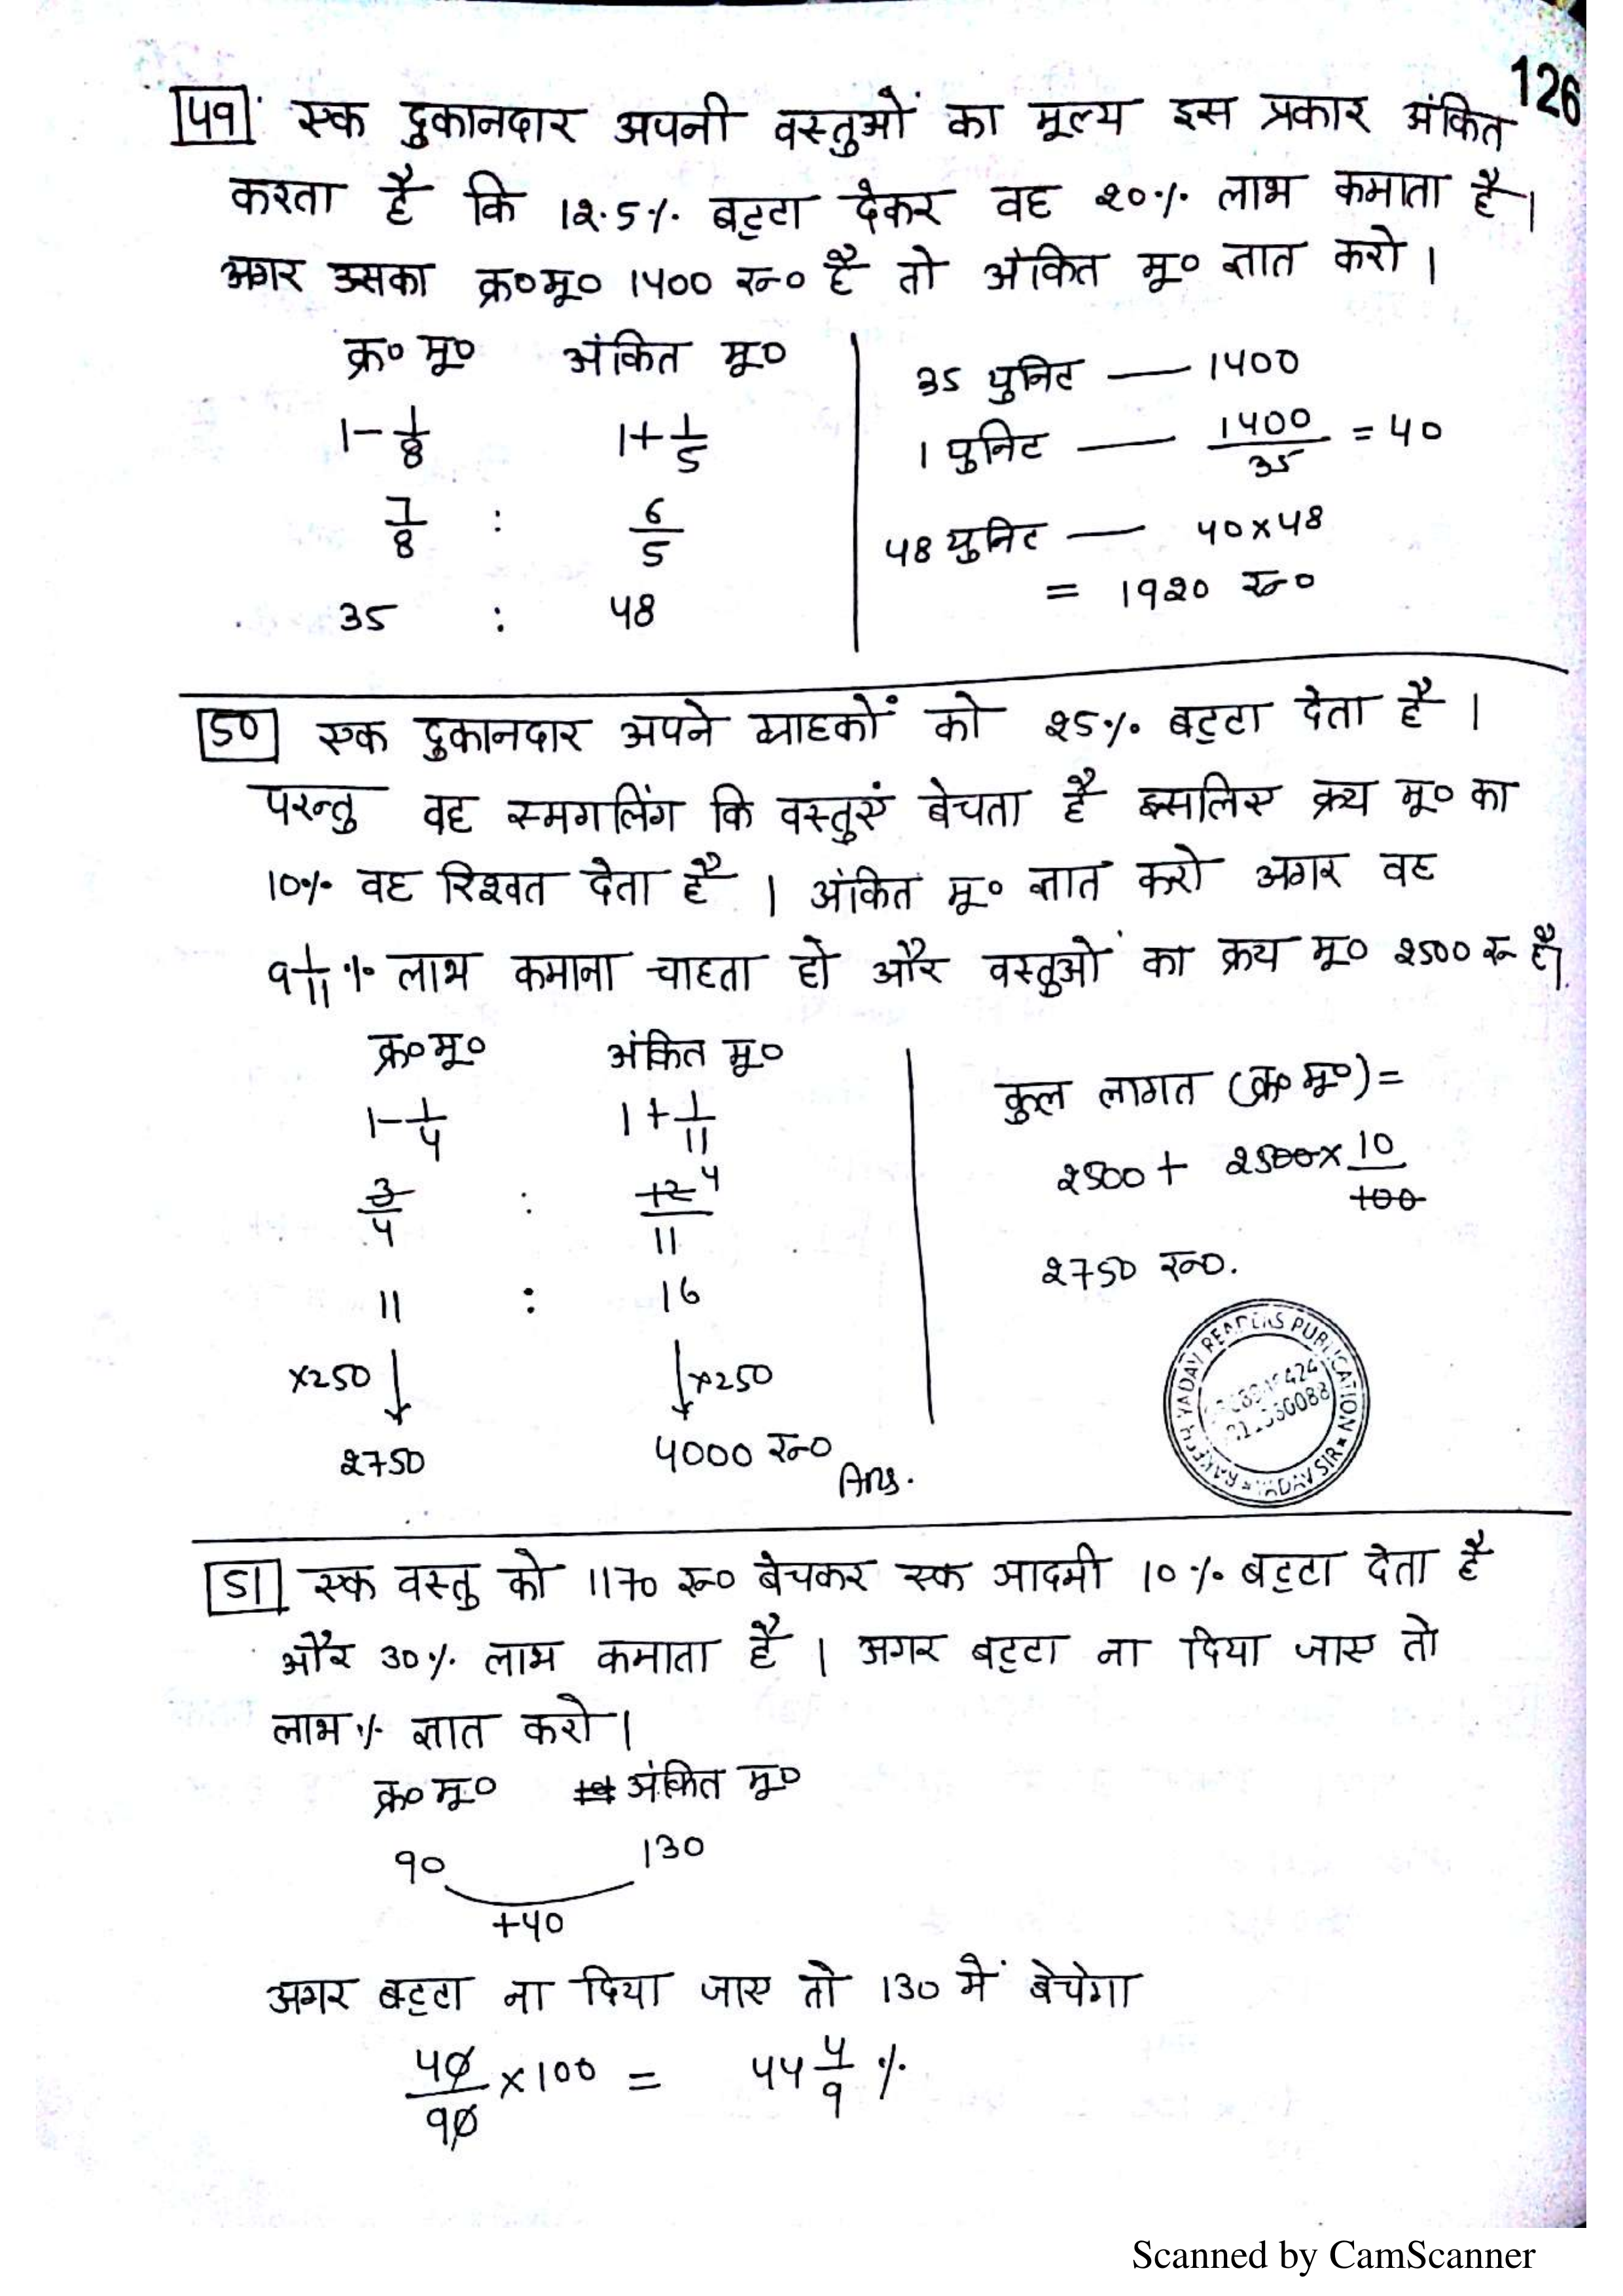 126
49 एक दुकानदार अपनी वस्तुओं का मूल्य इस प्रकार अंकित
करता है कि 12.5% बट्टा देकर वह 20% लाभ कमाता है।
अगर उसका क्र०मू० 1400 रू० है तो अंकित मू० ज्ञात करो।
क्र० मू० अंकित मू०
1-1/8 1+1/5
7/8 : 6/5
35 : 48
35 युनिट — 1400
1 युनिट — 1400/35 = 40
48 युनिट — 40×48
= 1920 रू०
50 एक दुकानदार अपने ग्राहकों को 25% बट्टा देता है।
परन्तु वह स्मगलिंग कि वस्तुएं बेचता है इसलिए क्रय मू० का
10% वह रिश्वत देता है। अंकित मू० ज्ञात करो अगर वह
9 1/11 % लाभ कमाना चाहता हो और वस्तुओं का क्रय मू० 2500 रू है।
क्र०मू० अंकित मू०
1-1/4 1+1/11
3/4 : 12/11 4
11 : 16
×250 ×250
2750 4000 रू० Ans.
कुल लागत (क्र० मू०)=
2500 + 2500×10/100
2750 रू०.
RAKESH YADAV READERS PUBLICATION
51 एक वस्तु को 1170 रू० बेचकर एक आदमी 10% बट्टा देता है
और 30% लाभ कमाता है। अगर बट्टा ना दिया जाए तो
लाभ % ज्ञात करो।
क्र० मू० अंकित मू०
90 130
+40
अगर बट्टा ना दिया जाए तो 130 में बेचेगा
40/90 ×100 = 44 4/9 %
Scanned by CamScanner